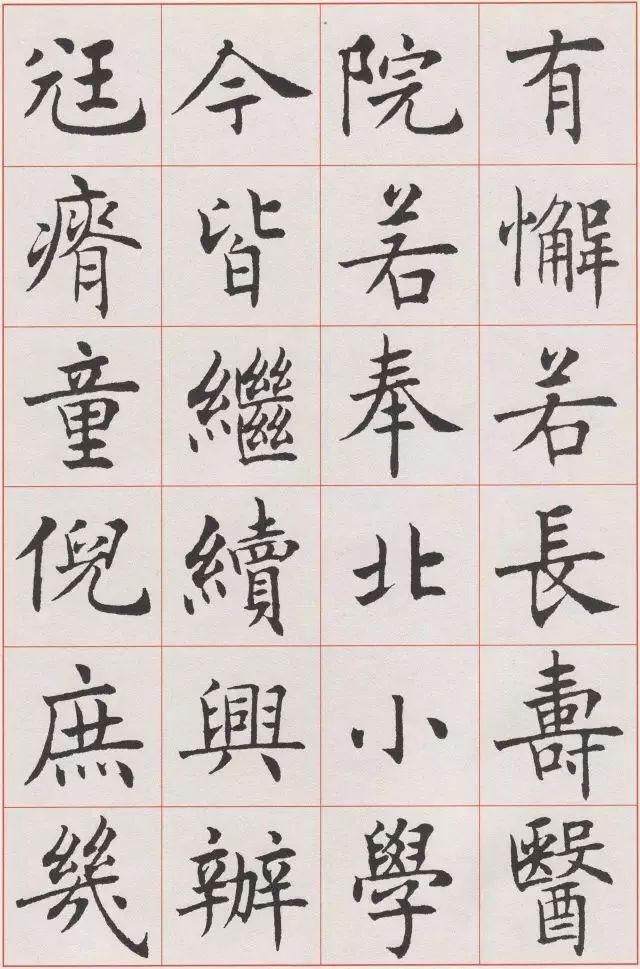 有懈若長壽醫
院若奉北小學
今皆繼續興辦
尩瘠童倪庶幾